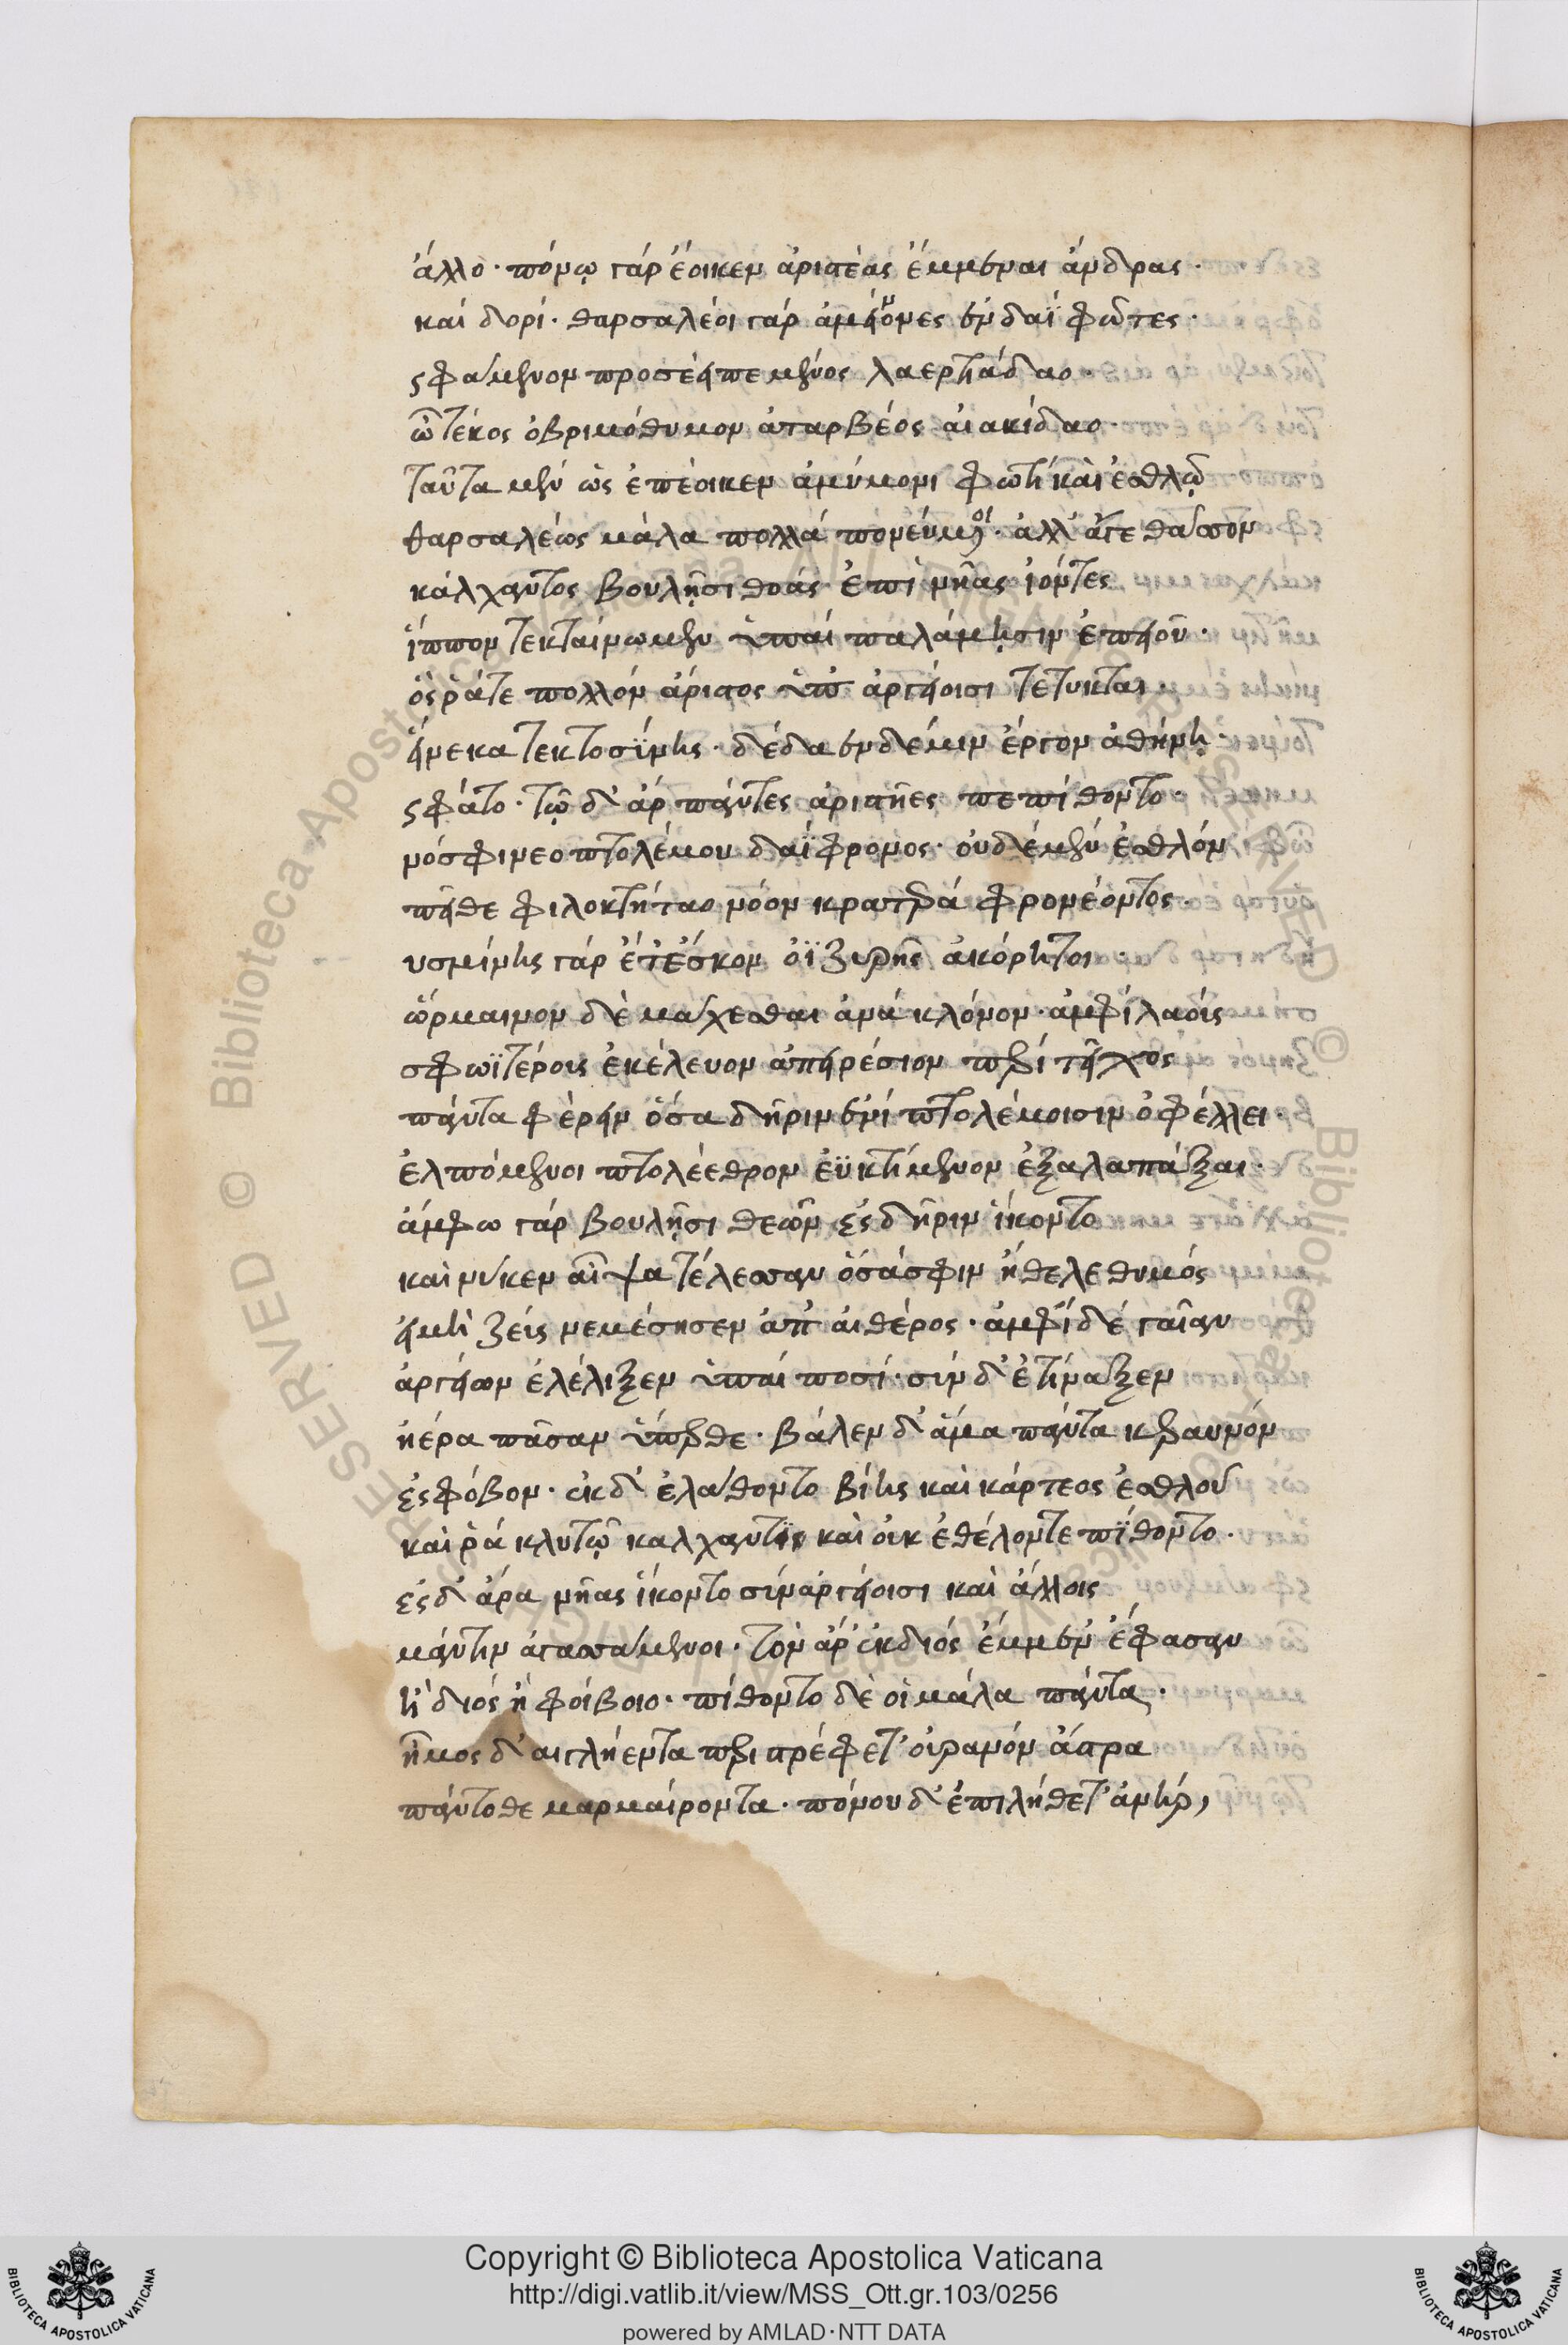 ἄλλο· πόνῳ γὰρ ἔοικεν ἀριστέας ἔμμεναι ἄνδρας·
καὶ δορί· θαρσαλέοι γὰρ ἀμείνονες ἐν δαῒ φῶτες·
ς φάμενον προσέειπε μένος λαερτιάδαο·
ὦ τέκος ὀβριμόθυμον ἀταρβέος αἰακίδαο·
ταῦτα μὲν ὡς ἐπέοικεν ἀμύμονι φωτὶ καὶ ἐσθλῷ
θαρσαλέως μάλα πολλὰ πονεύμενοι· ἀλλ' ἄγε θᾶσσον
κάλχαντος βουλῇσι θοὰς ἐπὶ νῆας ἰόντες
ἵππον τεκταίνωμεν ὑπαὶ παλάμῃσιν ἐπειοῦ·
ὅς ῥά τε πολλὸν ἄριστος ὑπ' ἀργείοισι τέτυκται
εἵνεκα τεκτοσύνης· δέδαεν δέ μιν ἔργον ἀθήνη·
ς φάτο· τῷ δ' ἄρ πάντες ἀριστῆες πεπίθοντο·
νόσφι νεοπτολέμου δαΐφρονος· οὐδὲ μὲν ἐσθλὸν
πεῖθε φιλοκτήταο νόον κρατερὰ φρονέοντος·
υσμίνης γὰρ ἔτ' ἔσκον ὀϊζυρῆς ἀκόρητοι
ὥρμαινον δὲ μάχεσθαι ἀνὰ κλόνον· ἀμφὶ λαοῖς
σφωϊτέροις ἐκέλευον ἀπειρέσιον περὶ τεῖχος
πάντα φέρειν ὅσα δῆριν ἐνὶ πτολέμοισιν ὀφέλλει·
ἐλπόμενοι πτολίεθρον ἐϋκτίμενον ἐξαλαπάξαι·
ἄμφω γὰρ βουλῇσι θεῶν ἐς δῆριν ἵκοντο
καὶ νύ κεν αἶψα τέλεσσαν ὅσά σφιν ἤθελε θυμός
εἰ μὴ ζεὺς νεμέσησεν ἀπ' αἰθέρος· ἀμφὶ δὲ γαῖαν
ἀργείων ἐλέλιξεν ὑπαὶ ποσί· σὺν δ' ἐτίναξεν
ἠέρα πᾶσαν ὕπερθε· βάλεν δ' ἅμα πάντα κεραυνὸν
ἐς φόβον· ἐκ δ' ἐλάθοντο βίης καὶ κάρτεος ἐσθλοῦ
καὶ ῥὰ κλυτῷ καλχαντι καὶ οὐκ ἐθέλοντε πίθοντο·
ἐς δ' ἄρα νῆας ἵκοντο σὺν ἀργείοισι καὶ ἄλλοις
μάντιν ἀγασσάμενοι· τὸν ἄρ' ἐκ διὸς ἔμμεν ἔφασαν
ἢ διὸς ἢ φοίβοιο· πίθοντο δέ οἱ μάλα πάντα·
ἦμος δ' αἰγλήεντα περιστρέφετ' οὐρανὸν ἄστρα
πάντοθε μαρμαίροντα· πόνου δ' ἐπιλήθετ' ἀνήρ,
Copyright © Biblioteca Apostolica Vaticana
http://digi.vatlib.it/view/MSS_Ott.gr.103/0256
powered by AMLAD·NTT DATA